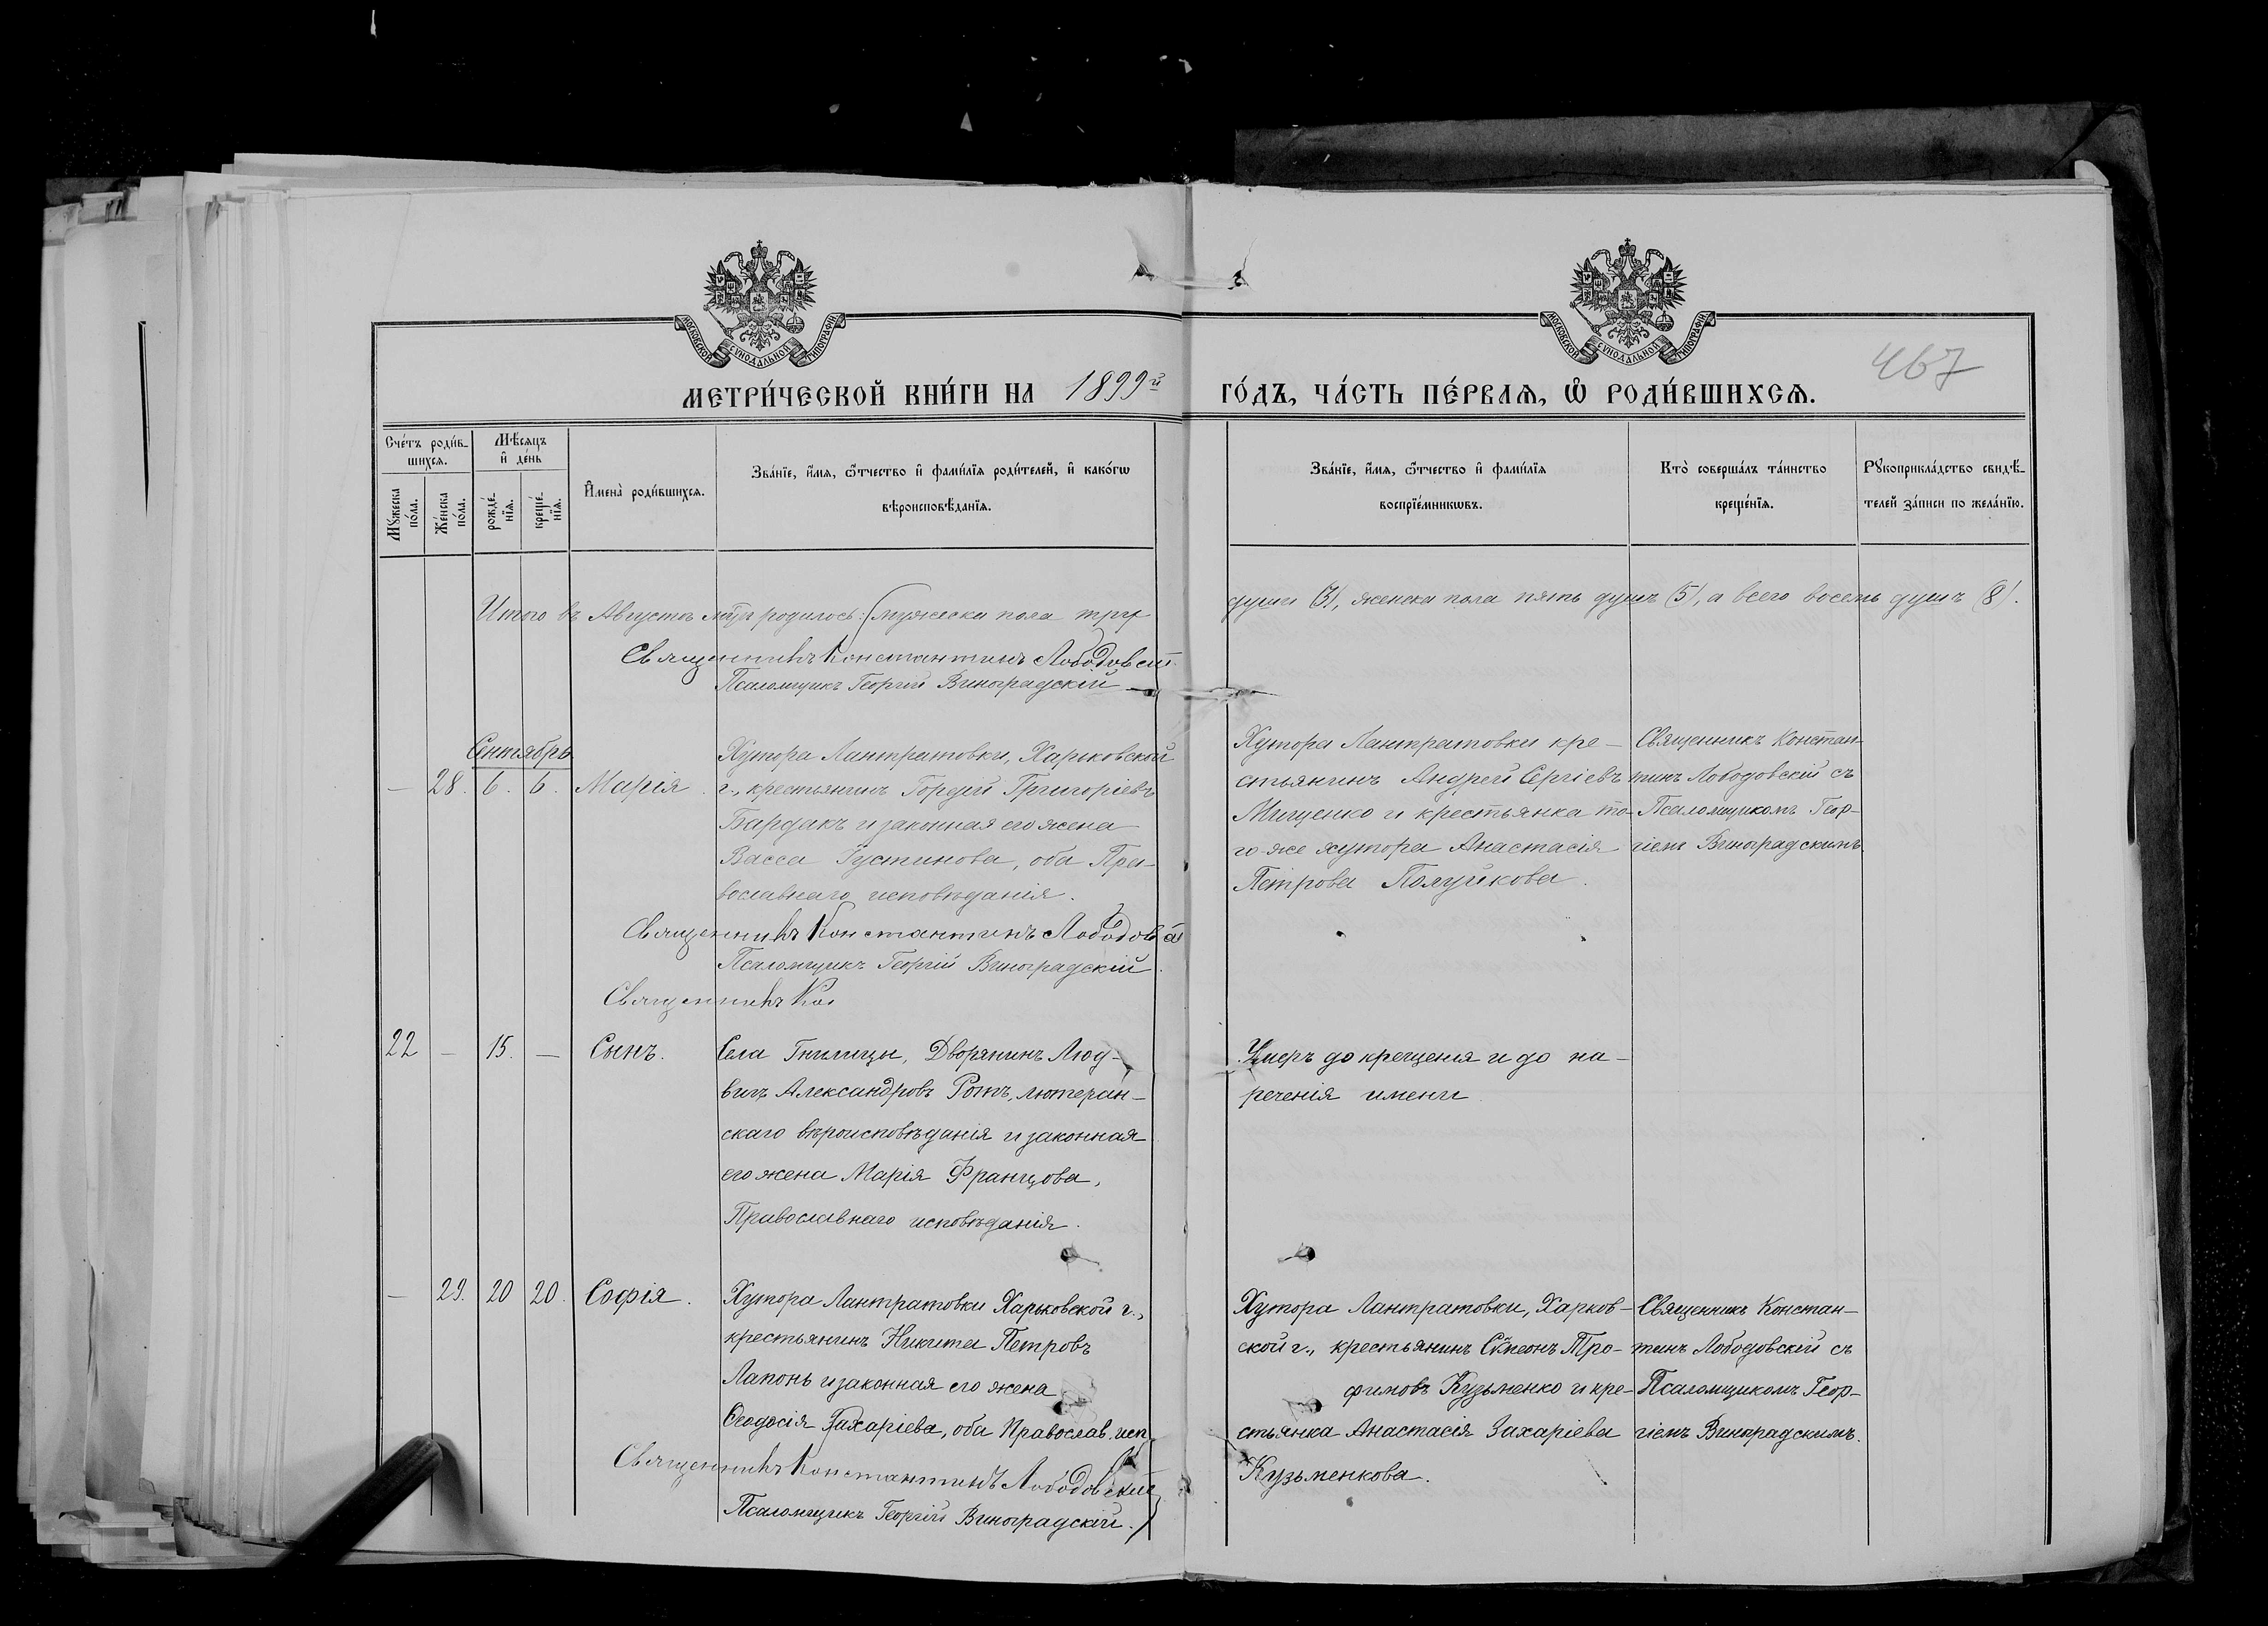 МОСКОВСКОЙ СУНОДАЛЬНОЙ ТИПОГРАФІИ
МОСКОВСКОЙ СУНОДАЛЬНОЙ ТИПОГРАФІИ
467
МЕТРИ́ЧЕСКОЙ КНИ́ГИ НА 1899й ГО́ДЪ, ЧА́СТЬ ПЕ́РВАѦ, Ѡ҆ РОДИ́ВШИХСѦ.
Сче́тъ роди́в-
шихсѧ.
Мꙋжеска
по́ла.
Же́нска
по́ла.
Мѣ́сѧцъ
и҆ де́нь
рожде́-
нїѧ.
креще́-
нїѧ.
И҆мена̀ роди́вшихсѧ.
Зва́нїе, и҆́мѧ, ѻ҆́тчество и҆ фами́лїѧ роди́телей, и҆ како́гѡ
вѣроисповѣ́данїѧ.
Зва́нїе, и҆́мѧ, ѻ҆́тчество и҆ фами́лїѧ
воспрїе́мникѡвъ.
Кто̀ соверша́лъ та́инство
креще́нїѧ.
Рꙋкоприкла́дство свидѣ́-
телей за́писи по жела́нїю.
Итого въ Августѣ м-цѣ родилось: мужеска пола три души (3), женска пола пять душъ (5), а всего восемь душъ (8).
Священникъ Константинъ Лободовскій
Псаломщикъ Георгій Виноградскій
Сентябрь
— 28. 6. 6. Марія.
Хутора Лантратовки, Харьковской
г., крестьянинъ Гордій Григоріевъ
Бардакъ и законная его жена
Васса Іустинова, оба Пра-
вославнаго исповѣданія.
Хутора Лантратовки кре-
стьянинъ Андрей Сергіевъ
Мищенко и крестьянка то-
го-же хутора Анастасія
Петрова Полуйкова.
Священникъ Констан-
тинъ Лободовскій съ
Псаломщикомъ Геор-
гіемъ Виноградскимъ
Священникъ Константинъ Лободовскій
Псаломщикъ Георгій Виноградскій.
Священникъ Кон
22 — 15. — Сынъ.
Села Гнилицы, Дворянинъ Люд-
вигъ Александровъ Ротъ, лютеран-
скаго вѣроисповѣданія и законная
его жена Марія Францова,
Православнаго исповѣданія.
Умеръ до крещенія и до на-
реченія имени
— 29. 20 20. Софія.
Хутора Лантратовки Харьковской г.,
крестьянинъ Никита Петровъ
Лапонь и законная его жена
Ѳеодосія Захаріева, оба Православ. исп.
Хутора Лантратовки, Харков-
ской г., крестьянинъ Сѵмеонъ Тро-
фимовъ Кузьменко и кре-
стьянка Анастасія Захаріева
Кузьменкова.
Священникъ Констан-
тинъ Лободовскій съ
Псаломщикомъ Геор-
гіемъ Виноградскимъ.
Священникъ Константинъ Лободовскій
Псаломщикъ Георгій Виноградскій.